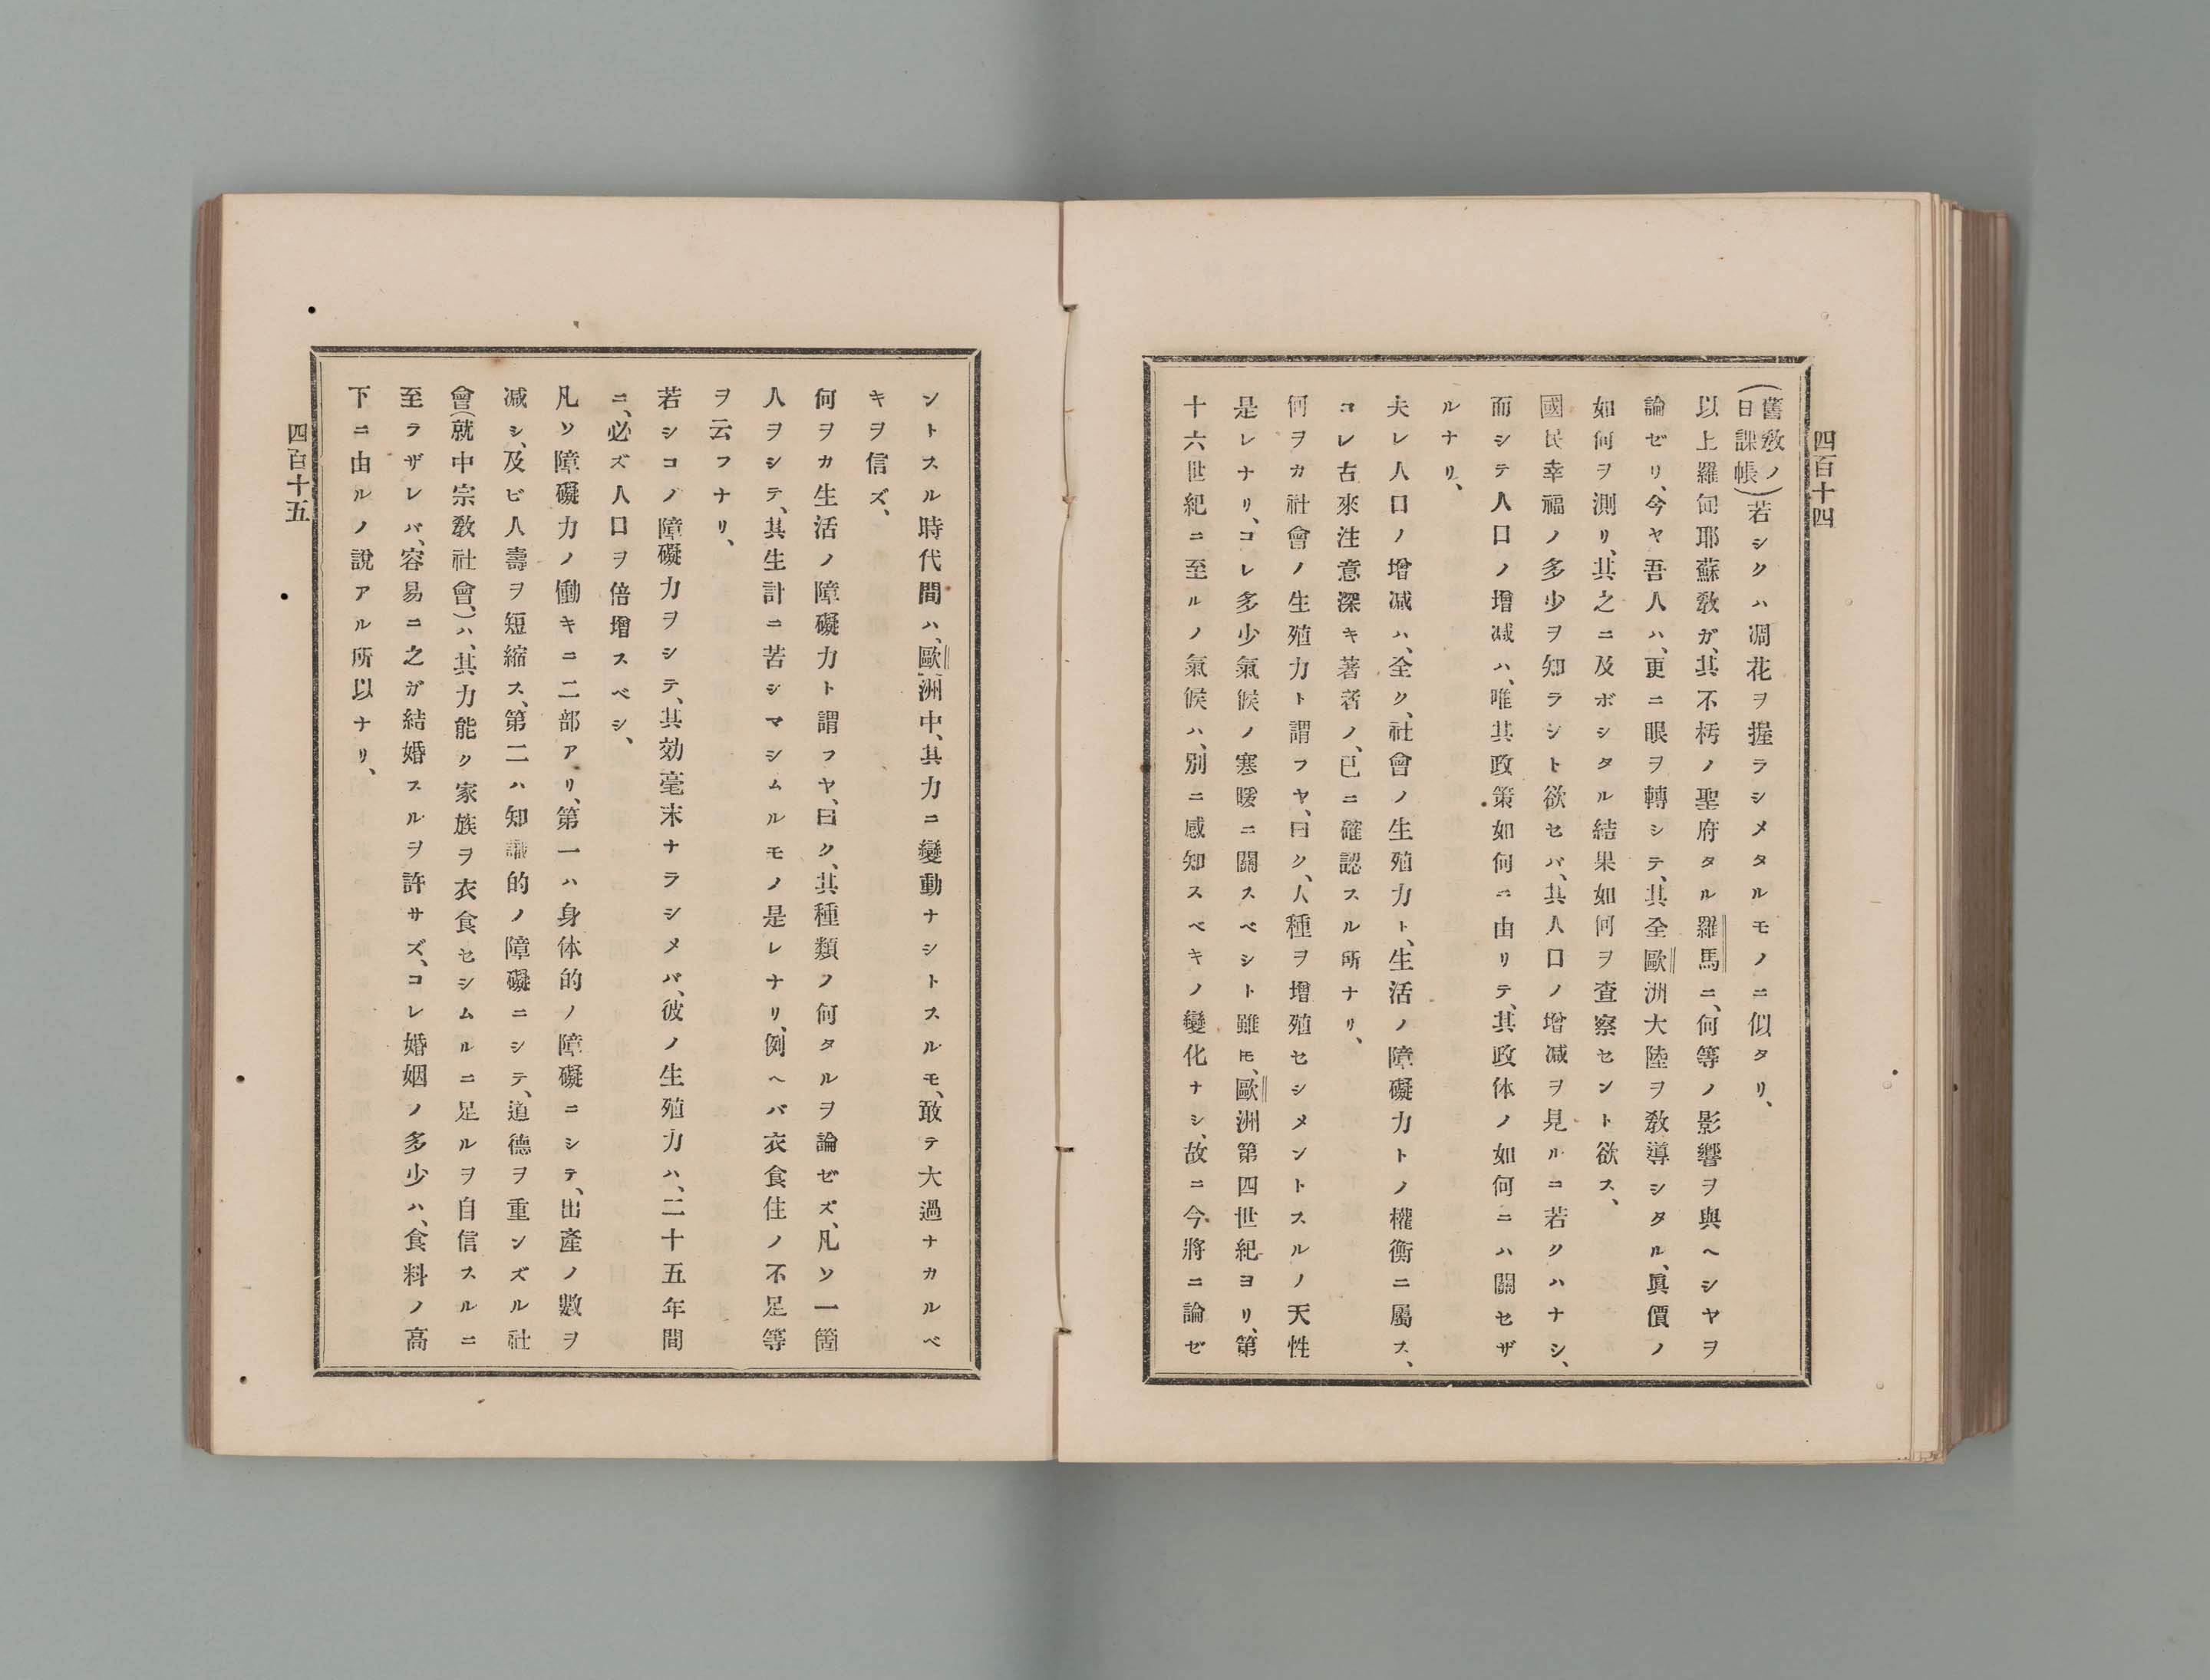 四百十四
(舊敎ノ日課帳)若シクハ凋花ヲ握ラシメタルモノニ似タリ、
以上羅甸耶蘇敎ガ、其不朽ノ聖府タル羅馬ニ、何等ノ影響ヲ與ヘシヤヲ
論ゼリ、今ヤ吾人ハ、更ニ眼ヲ轉シテ、其全歐洲大陸ヲ敎導シタル、眞價ノ
如何ヲ測リ、其之ニ及ボシタル結果如何ヲ査察セント欲ス、
國民幸福ノ多少ヲ知ラント欲セバ、其人口ノ增减ヲ見ルニ若クハナシ、
而シテ人口ノ增减ハ、唯其政策如何ニ由リテ、其政体ノ如何ニハ關セザ
ルナリ、
夫レ人口ノ增减ハ、全ク、社會ノ生殖力ト、生活ノ障礙力トノ權衡ニ屬ス、
コレ古來注意深キ著者ノ、已ニ確認スル所ナリ、
何ヲカ社會ノ生殖力ト謂フヤ、曰ク、人種ヲ增殖セシメントスルノ天性
是レナリ、コレ多少氣候ノ寒暖ニ關スベシト雖モ、歐洲第四世紀ヨリ、第
十六世紀ニ至ルノ氣候ハ、別ニ感知スベキノ變化ナシ、故ニ今將ニ論ゼ
ントスル時代間ハ、歐洲中、其力ニ變動ナシトスルモ、敢テ大過ナカルベ
キヲ信ズ、
何ヲカ生活ノ障礙力ト謂フヤ、曰ク、其種類ノ何タルヲ論ゼズ、凡ソ一箇
人ヲシテ、其生計ニ苦シマシムルモノ是レナリ、例ヘバ衣食住ノ不足等
ヲ云フナリ、
若シコノ障礙力ヲシテ、其効毫末ナラシメバ、彼ノ生殖力ハ、二十五年間
ニ、必ズ人口ヲ倍增スベシ、
凡ソ障礙力ノ働キニ二部アリ、第一ハ身体的ノ障礙ニシテ、出產ノ數ヲ
减シ、及ビ人壽ヲ短縮ス、第二ハ知識的ノ障礙ニシテ、道德ヲ重ンズル社
會(就中宗敎社會、)ハ、其力能ク家族ヲ衣食セシムルニ足ルヲ自信スルニ
至ラザレバ、容易ニ之ガ結婚スルヲ許サズ、コレ婚姻ノ多少ハ、食料ノ高
下ニ由ルノ說アル所以ナリ、
四百十五